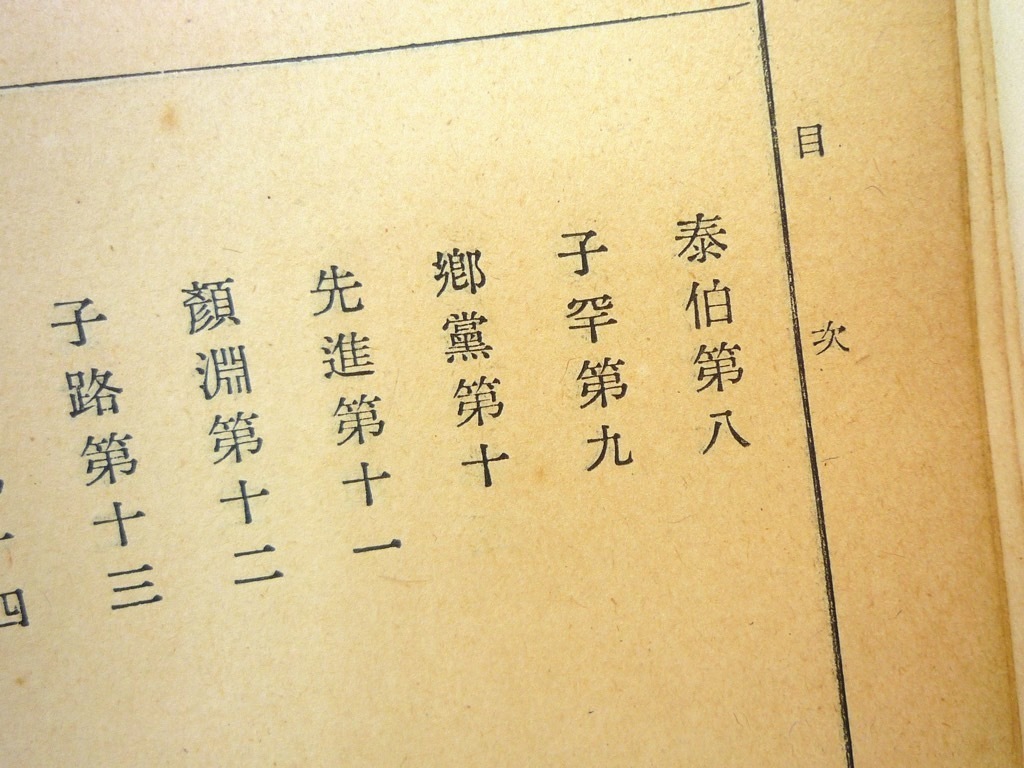 目次
泰伯第八
子罕第九
鄉黨第十
先進第十一
顏淵第十二
子路第十三
四